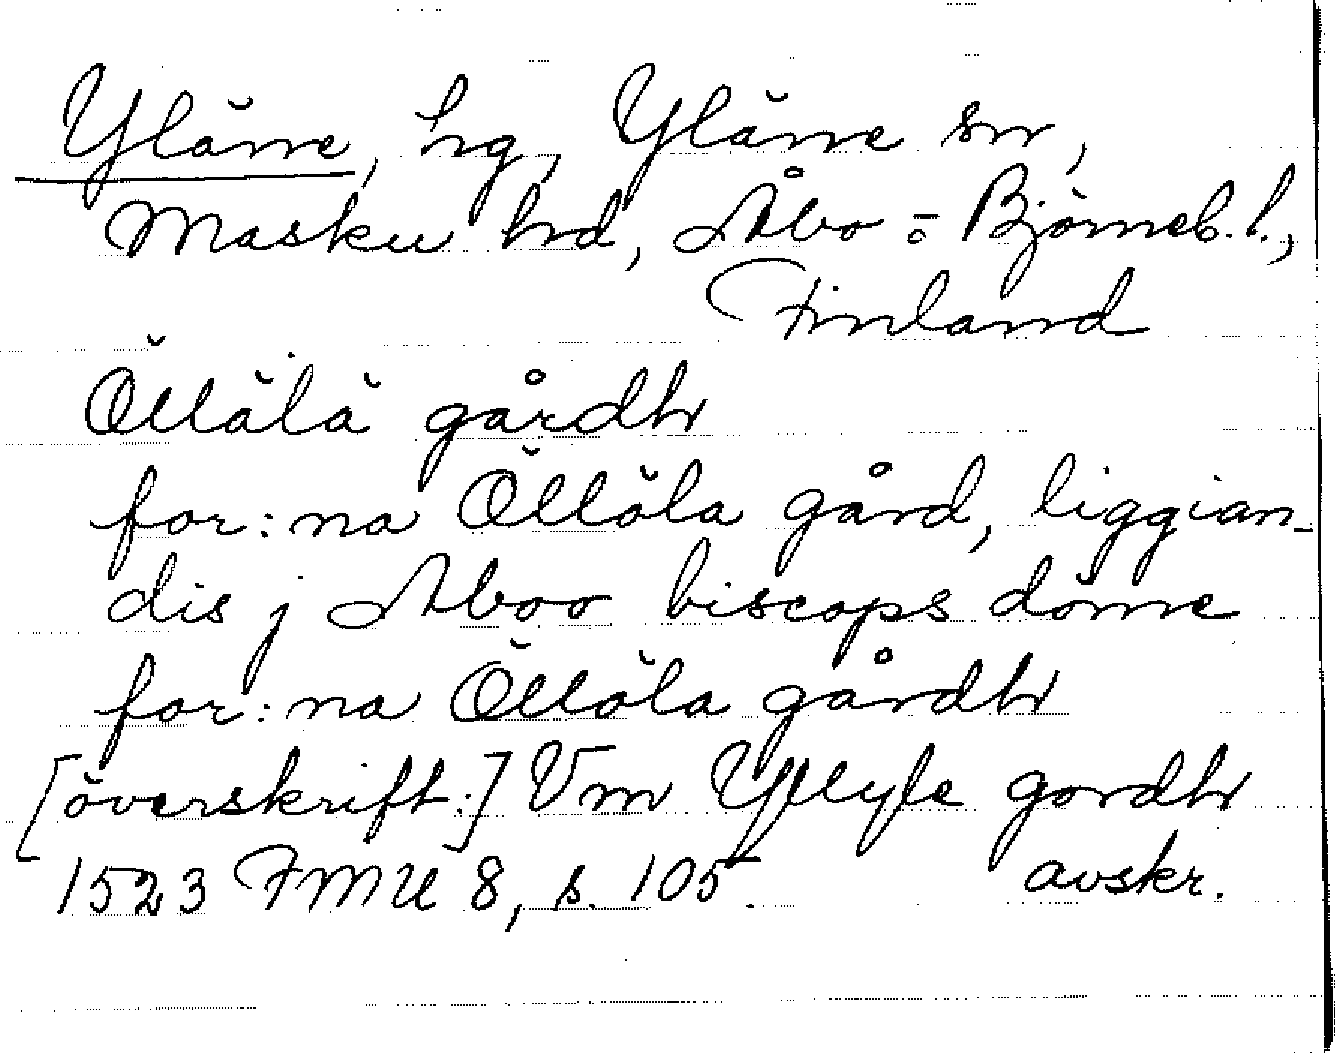 Yläne, hg, Yläne sn,
Masku hd, Åbo = Björneb. l.,
Finland
Öllälä gårdh
for:na Öllöla gård, liggian-
dis j Aboo biscops döme
for:na Öllöla gårdh
[överskift:] Vm Yllyle gordh
1523 FMU 8, s. 105. avskr.